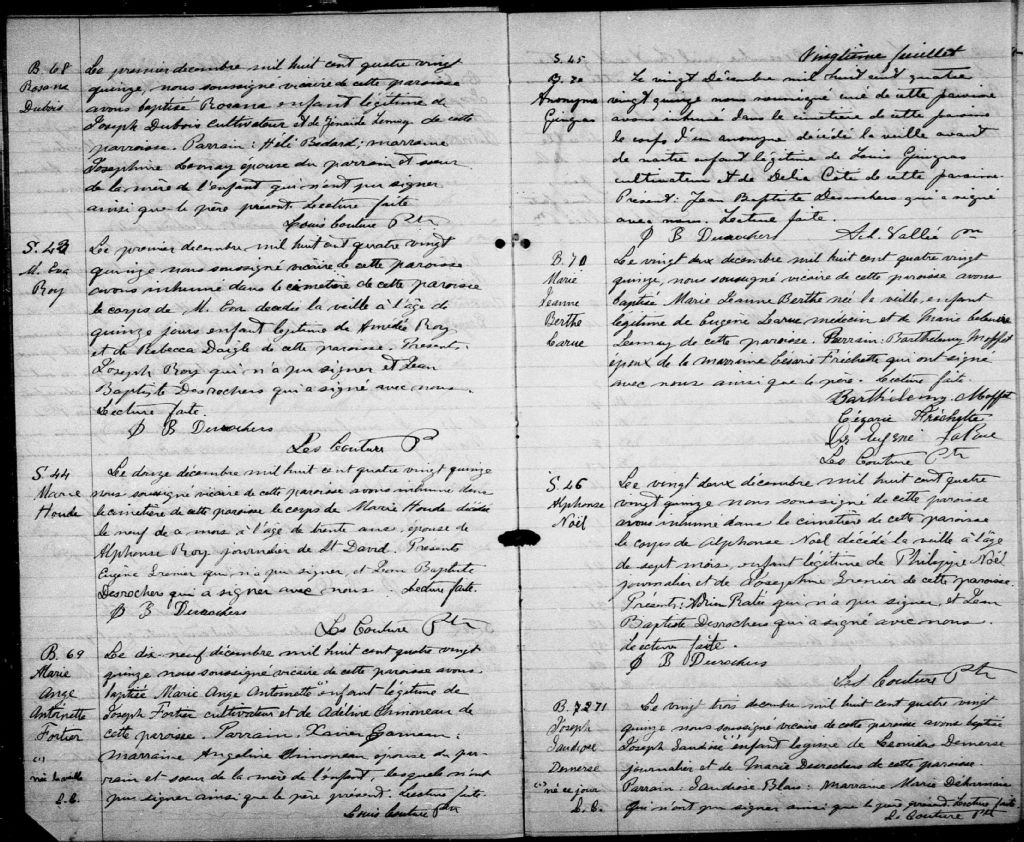 B. 68
Rosana
Dubois
Le premier decembre mil huit cent quatre vingt
quinze, nous soussigné vicaire de cette paroisse
avons baptisé Rosana enfant légitime de
Joseph Dubois cultivateur et de Zénaïde Lemay de cette
parroisse. Parrain: Héli Bedard; marraine
Josephine Lemay épouse du parrain et sœur
de la mère de l'enfant qui n'ont pu signer
ainsi que le père présent. Lecture faite
Louis Couture Ptre
S. 43
M. Eva
Roy
Le premier decembre mil huit cent quatre vingt
quinze nous soussigné vicaire de cette paroisse
avons inhumé dans le cimetière de cette paroisse
le corps de M. Eva decedée la veille à l'âge de
quinze jours enfant légitime de Amédée Roy
et de Rebecca Daigle de cette paroisse. Presents
Joseph Roy qui n'a pu signer et Jean
Baptiste Desrochers qui a signé avec nous.
Lecture faite.
B Desrochers
Ls Couture P
S. 44
Marie
Houde
Le douze decembre mil huit cent quatre vingt quinze
nous soussigné vicaire de cette paroisse avons inhumé dans
le cimetière de cette paroisse le corps de Marie Houde décédée
le neuf de ce mois à l'âge de trente ans épouse de
Alphonse Roy journalier de St David. Presents
Eugène Grenier qui n'a pu signer, et Jean Baptiste
Desrochers qui a signer avec nous. Lecture faite.
B Desrochers
Ls Couture Ptre
B. 69
Marie
Ange
Antoinette
Fortier
(1)
née la veille
L.C.
Le dix neuf décembre mil huit cent quatre vingt
quinze nous soussigné vicaire de cette paroisse avons
baptisé Marie Ange Antoinette (1) enfant légitime de
Joseph Fortier cultivateur et de Adéline Simoneau de
cette paroisse. Parrain. Xavier Garneau;
marraine Angeline Simoneau épouse du par-
rain et sœur de la mère de l'enfant, lesquels n'ont
pu signer ainsi que le père présent. Lecture faite
Louis Couture Ptre
Vingtième feuillet
S. 45
B. 70
Anonyme
Gingras
Le vingt Décembre mil huit cent quatre
vingt quinze nous soussigné curé de cette paroisse
avons inhumé dans le cimetière de cette paroisse
le corps d'un anonyme décédé la veille avant
de naitre enfant légitime de Louis Gingras
cultivateur et de Delia Côté de cette paroisse.
Présent: Jean Baptiste Desrochers qui a signé
avec nous. Lecture faite.
B Desrochers Ad. Vallée
B. 70
Marie
Jeanne
Berthe
Larue
Le vingt deux decembre mil huit cent quatre vingt
quinze, nous soussigné vicaire de cette paroisse avons
baptisé Marie Jeanne Berthe née la veille, enfant
légitime de Eugène Larue médecin et de Marie
Lemay de cette paroisse. Parrain: Barthelemy Moffet
époux de la marraine Césarie Fréchette qui ont signé
avec nous ainsi que le père. Lecture faite.
Barthélemy Moffet
Cézarie Fréchette
Eugène LaRue
Ls Couture Ptre
S. 46
Alphonse
Noël
Le vingt deux décembre mil huit cent quatre
vingt quinze nous soussigné de cette paroisse
avons inhumé dans le cimetière de cette paroisse
le corps de Alphonse Noël décédé la veille à l'âge
de sept mois, enfant légitime de Philippe Noël
journalier et de Josephine Grenier de cette paroisse.
Présents: qui n'a pu signer, et Jean
Baptiste Desrochers qui a signé avec nous.
Lecture faite.
B Desrochers
Ls Couture Ptre
B. 72 71
Joseph
Gaudiose
Demerse
(1)
né ce jour
L.C.
Le vingt trois decembre mil huit cent quatre vingt
quinze nous soussigné vicaire de cette paroisse avons baptisé
Joseph Gaudiose (1) enfant legitime de Leonidas Demerse
journalier et de Marie Desrochers de cette paroisse.
Parrain: Gaudiose Blais: Marraine Marie
qui n'ont pu signer ainsi que le père présent. Lecture faite
Ls Couture Ptre